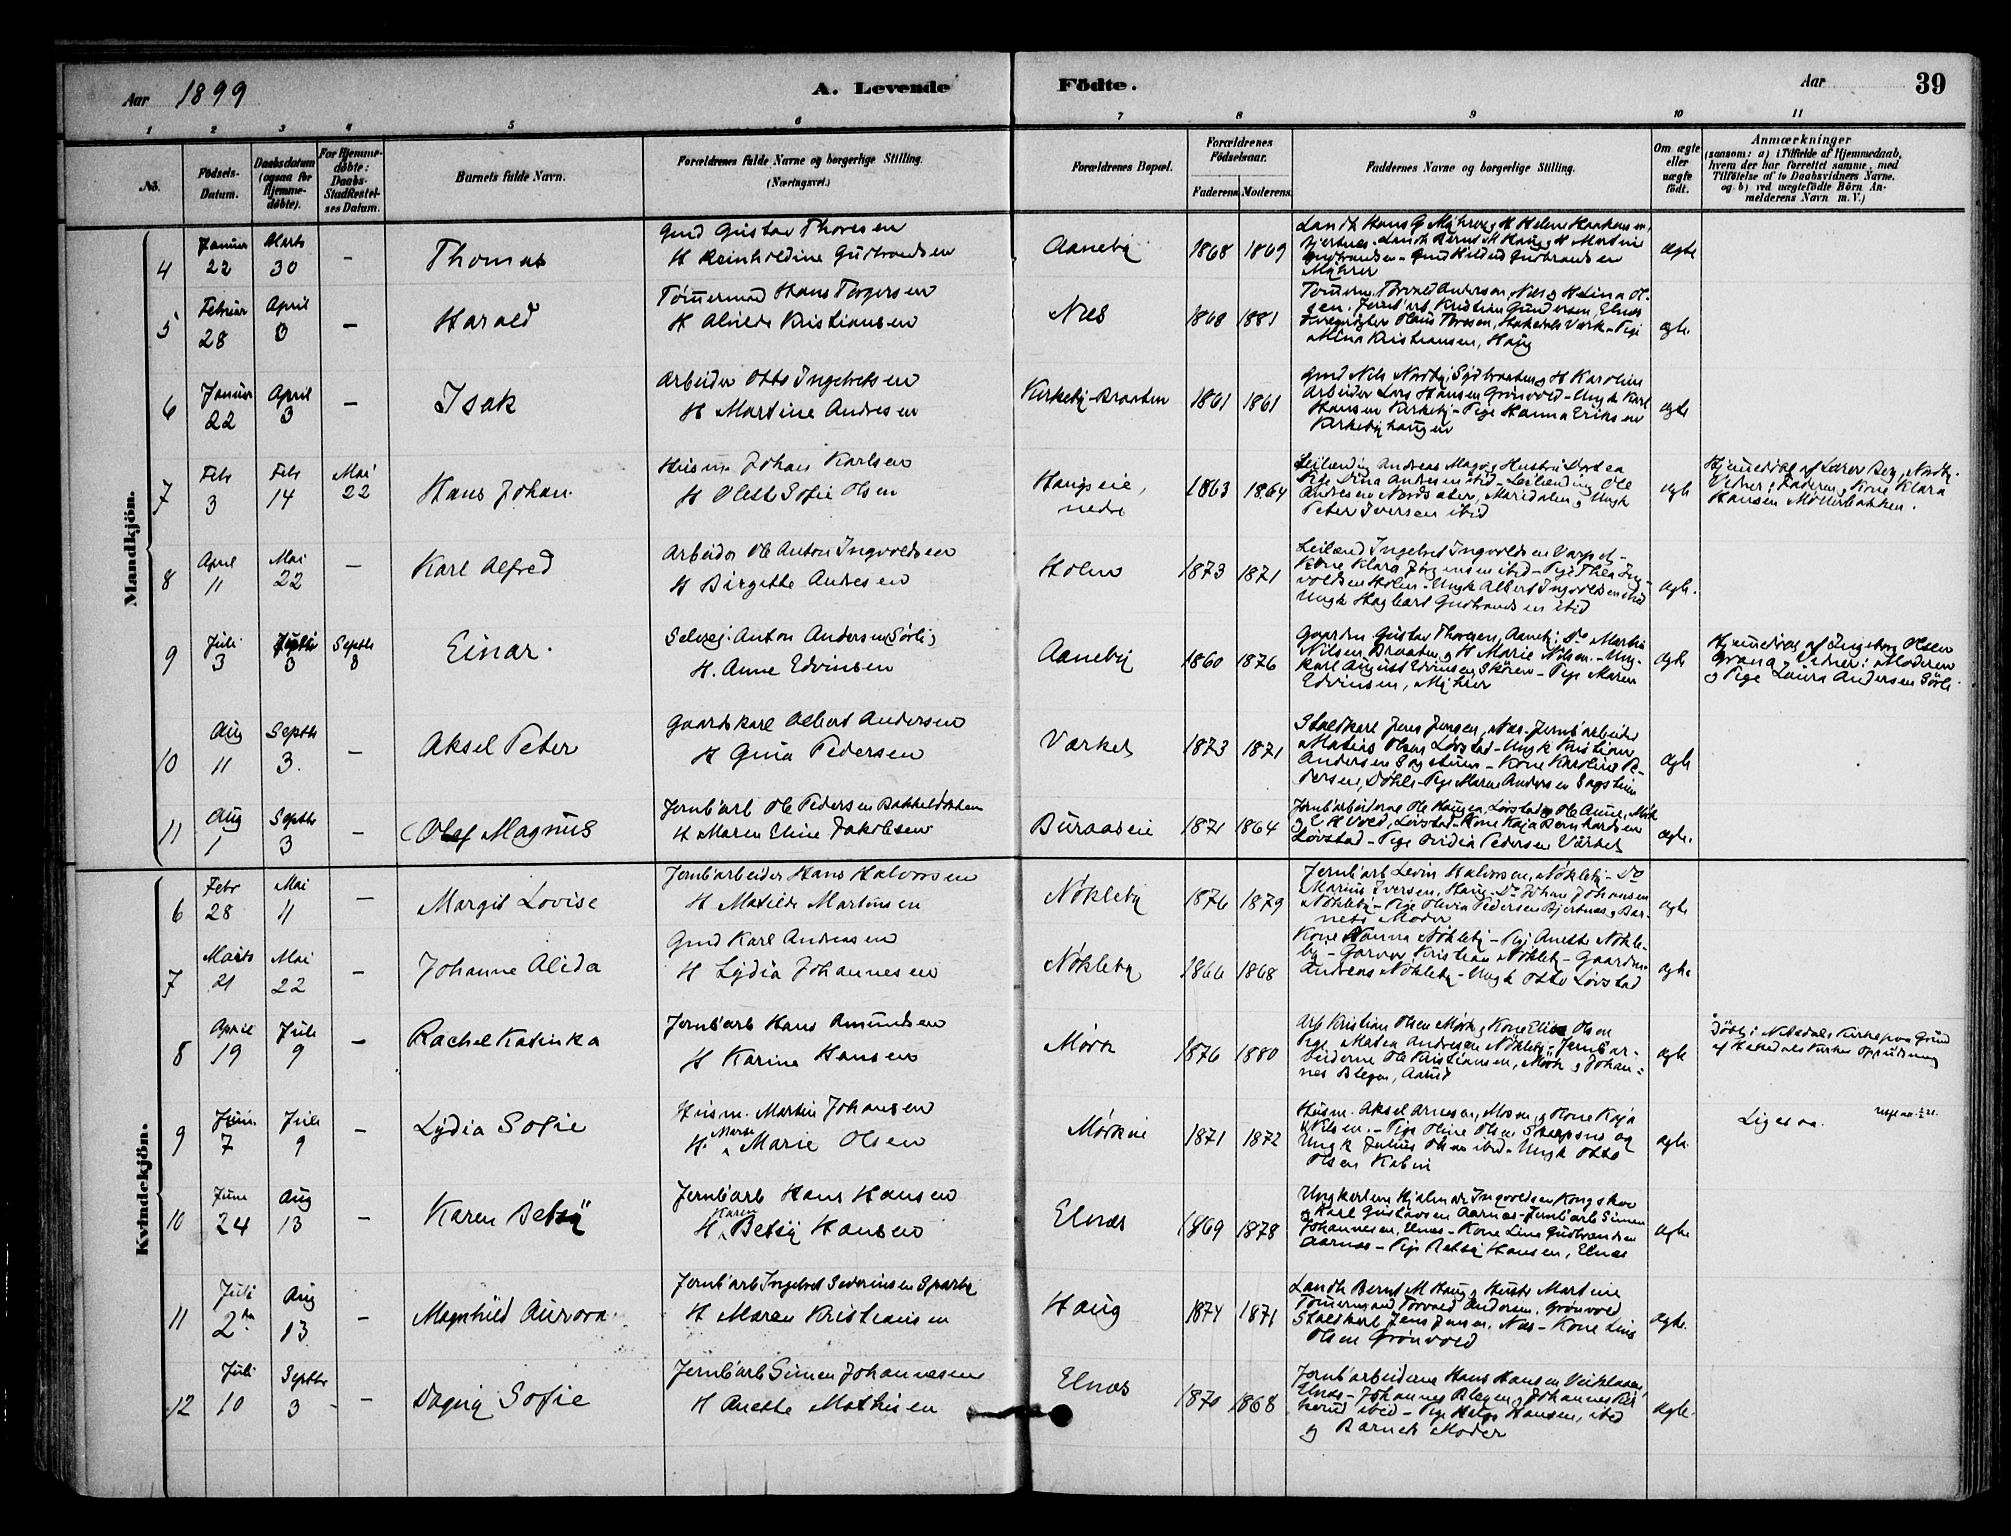 Aar 1899
A. Levende
Fødte.
Aar
39
1 2 3 4 5 6 7 8 9 10 11
No.
Fødsels-
Datum.
Daabsdatum
(ogsaa for
Hjemme-
døbte).
For Hjemme-
døbte:
Daabs-
Stadfæstel-
ses Datum.
Barnets fulde Navn.
Forældrenes fulde Navne og borgerlige Stilling.
(Næringsvei.)
Forældrenes Bopæl.
Forældrenes
Fødselsaar.
Faderens. Moderens.
Faddernes Navne og borgerlige Stilling.
Om ægte
eller
uægte
født.
Anmærkninger
(saasom: a) i Tilfælde af Hjemmedaab,
hvem der har forrettet samme, med
Tilføielse af to Daabsvidners Navne.
og b) ved uægtefødte Børn An-
melderens Navn m. V.)
Mandkjøn.
4
Januar
22
Marts
30
-
Thomas
Gmd Gustav Thoresen
H Reinholdine Gudbrandsen
Aaneby
1868 1869
Landh Hans G Myhrer, H Helene
Gudbrandsen - Gmd
Myhrer
ægte
5
Februar
28
April
3
-
Harald
Tømmermand Hans Torgersen
H Alvilde Kristiansen
Næs
1868 1881
Tømm. Torvald Andersen, Næs, H Lina Ol-
sen, Jernbarb Kristian Gundersen, Elnæs
Mina Kristiansen, Haug
ægte.
6
Januar
22
April
3
-
Isak
Arbeider Otto Ingebretsen
H Martine Andresen
Kirkeby-Braaten
1861 1861
Gmd Nils Nordby, Sydbraaten, H Karoline
Arbeider Lars Hansen Grønvold - Ungk Karl
Hansen Kirkeby - Pige Hanna Eriksen
Kirkebyhaugen
ægte
7
Feb
3
Feb
14
Mai
22
Hans Johan.
Husm. Johan Karlsen
H Olette Sofie Olsen
Haugseie,
nedre
1863 1864
Leilænding Andreas Hustru
Pige Dina Andresen ibid - Leilænding Ole
Andresen Maridalen, Ungk
Peter Iversen ibid
ægte
Hjemmedøbt af Lærer Berg, Nordby.
Vidner: Faderen, Kone Klara
Hansen Møllerbakken.
8
April
11
Mai
22
-
Karl Alfred
Arbeider Ole Anton Ingvoldsen
H Birgitte Andresen
Holm
1873 1871
Leilænd Ingebret Ingvoldsen Varpet -
Kone Klara Jørgensen ibid - Pige Thea Ing-
voldsen Holm - Ungk Albert Ingvoldsen ibid
Ungk Hagbart Gudbrandsen ibid
ægte.
9
Juli
3
Juli
3
Septbr
8
Einar.
Selvej. Anton Andersen (Sørli)
H. Anne Edvinsen
Aaneby
1860 1876
Gaardm. Gustav Thoresen, Aaneby. Do Martin
Nilsen Braaten, H Marie Nilsen. - Ung-
karl August Edvinsen Skøien - Pige Maren
Edvinsen, Myhrer
ægte
Hjemmedøbt af Ingeborg Olsen
Grana, Vidner: Moderen
og Pige Laura Andersen Sørli.
10
Aug
11
Septbr
3.
-
Aksel Peter
Gaardskarl Albert Andersen
H Gina Pedersen
Værket
1873 1871
Staldkarl Jens Jensen, Næs. Jernbarbeider
Matias Olsen Løvstad - Ungk Kristian
Andersen Sagstuen - Kone Karoline Pe-
dersen, Døhli - Pige Maren Andersen Sagstuen
ægte
11
Aug
1
Septbr
3
-
Olaf Magnus
Jernbarb Ole Pedersen Bakkeløkken
H Maren Eline Jakobsen
Buraaseie
1871 1864
Jernbarbeiderne Ole Haugen, Løvstad, Ole Aune, Mørk
, E H Vold, Løvstad - Kone Kaja Bernhardsen
Løvstad - Pige Ovidia Pedersen Værket
ægte.
Kvindekjøn.
6
Febr
28
Mai
11
-
Margit Lovise
Jernbarbeider Hans Halvorsen
H Matilde Martinsen
Nøkleby
1876 1879
Jernbarb Levin Halvorsen, Nøkleby - Do
Marius Iversen, Haug - Do Johan Johansen
Nøkleby - Pige Olivia Pedersen Bjertnæs, Bar-
nets Moder
ægte
7
Marts
21
Mai
22
-
Johanne Alida
Gmd Karl Andreasen
H Lydia Johannesen
Nøkleby
1866 1868
Kone Hanna Nøkleby - Pige Anette Nøkle-
by - Garver Kristian Nøkleby - Gaardm.
Andreas Nøkleby - Ungk Otto Løvstad
ægte
8
April
19
Juli
9
-
Rachel Katinka
Jernbarb Hans Amundsen
H Karine Hansen
Mørk
1876 1880
Arb Kristian Olsen Mørk, Kone Elise Olsen
Pige Matea Andresen Nøkleby - Jernbar-
beiderne Ole Kristiansen, Mørk, Johan-
nes Blegen, Aarud
ægte
Døbt i Nitedals Kirke paa Grund
af Hakedals Kirkes Opudsning
9
Juni
7
Juli
9
-
Lydia Sofie
Husm. Martin Johansen
H. Marie Olsen
Mørkeie
1871 1872
Husm. Aksel Arnesen, Mosen, Kone Kaja
Nilsen. - Pige Oline Olsen Skøyen og
Ungk Julius Olsen ibid - Ungk Otto
Olsen
ægte.
Ligesaa.
10
Juni
24
Aug
13
-
Karen Betsy
Jernbarb Hans Hansen
Karen
H. Betsy Hansen
Elnæs
1869 1878
Ungkarlene Hjalmar Ingvoldsen Kongskov
, Karl Gustavsen Aarnæs - Jernbarb Simen
Johannesen, Elnæs - Kone Lina Gudbrandsen
Aarnæs - Pige Betsy Hansen, Elnæs
ægte
11
Juli
2
Aug
13
-
Magnhild Aurora.
Jernbarb Ingebret Severinsen Sparby
H Maren Kristiansen
Haug
1874 1871
Landh Bernt M Haug, Hustr Martine
Tømmermand Torvald Andersen, Grønvold
Staldkarl Jens Jensen, Næs - Kone Lina
Olsen Grønvold
ægte.
12
Juli
10
Septbr
3
-
Dagny Sofie
Jernbarb Simen Johannesen
H Anette Mathisen
Elnæs
1870 1868
Jernbarbeiderne Hans Hansen
Elnæs - Johannes Blegen, Johannes
ibid - Pige Helga Hansen, ibid
og Barnets Moder
ægte.